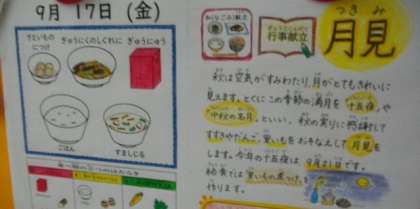 9月 17日(金)
さといもの
につけ
ぎゅうにくのしぐれに
ぎゅうにゅう
ごはん
すましじる
行事献立
つきみ
月見
秋は空気がすみわたり、月がとてもきれいに
見えます。とくにこの季節の満月を"十五夜"や
"中秋の名月"といい、秋の実りに感謝して
すすきやだんご、里いもをおそなえして月見を
します。今年の十五夜は、9月21日です。
給食では"里いもの煮つけ"を
作ります。